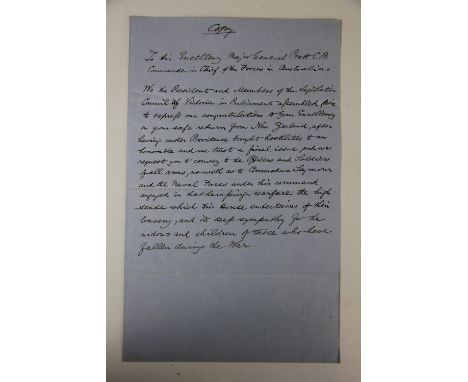 Copy
To His Excellency Major General Pratt C.B
Commander in Chief of the Forces in Australia.
We the President and Members of the Legislative
Council of Victoria in Parliament assembled, desire
to express our congratulations to your Excellency
on your safe return from New Zealand, after
having under Providence brought hostilities to an
honorable and we trust a final issue, and we
request you to convey to the Officers and Soldiers
of all arms, as well as to Commodore Seymour
and the Naval Forces under his command
engaged in that harassing warfare the high
sense which this House entertains of their
bravery, and its deep sympathy for the
widows and children of those who have
fallen during the War.